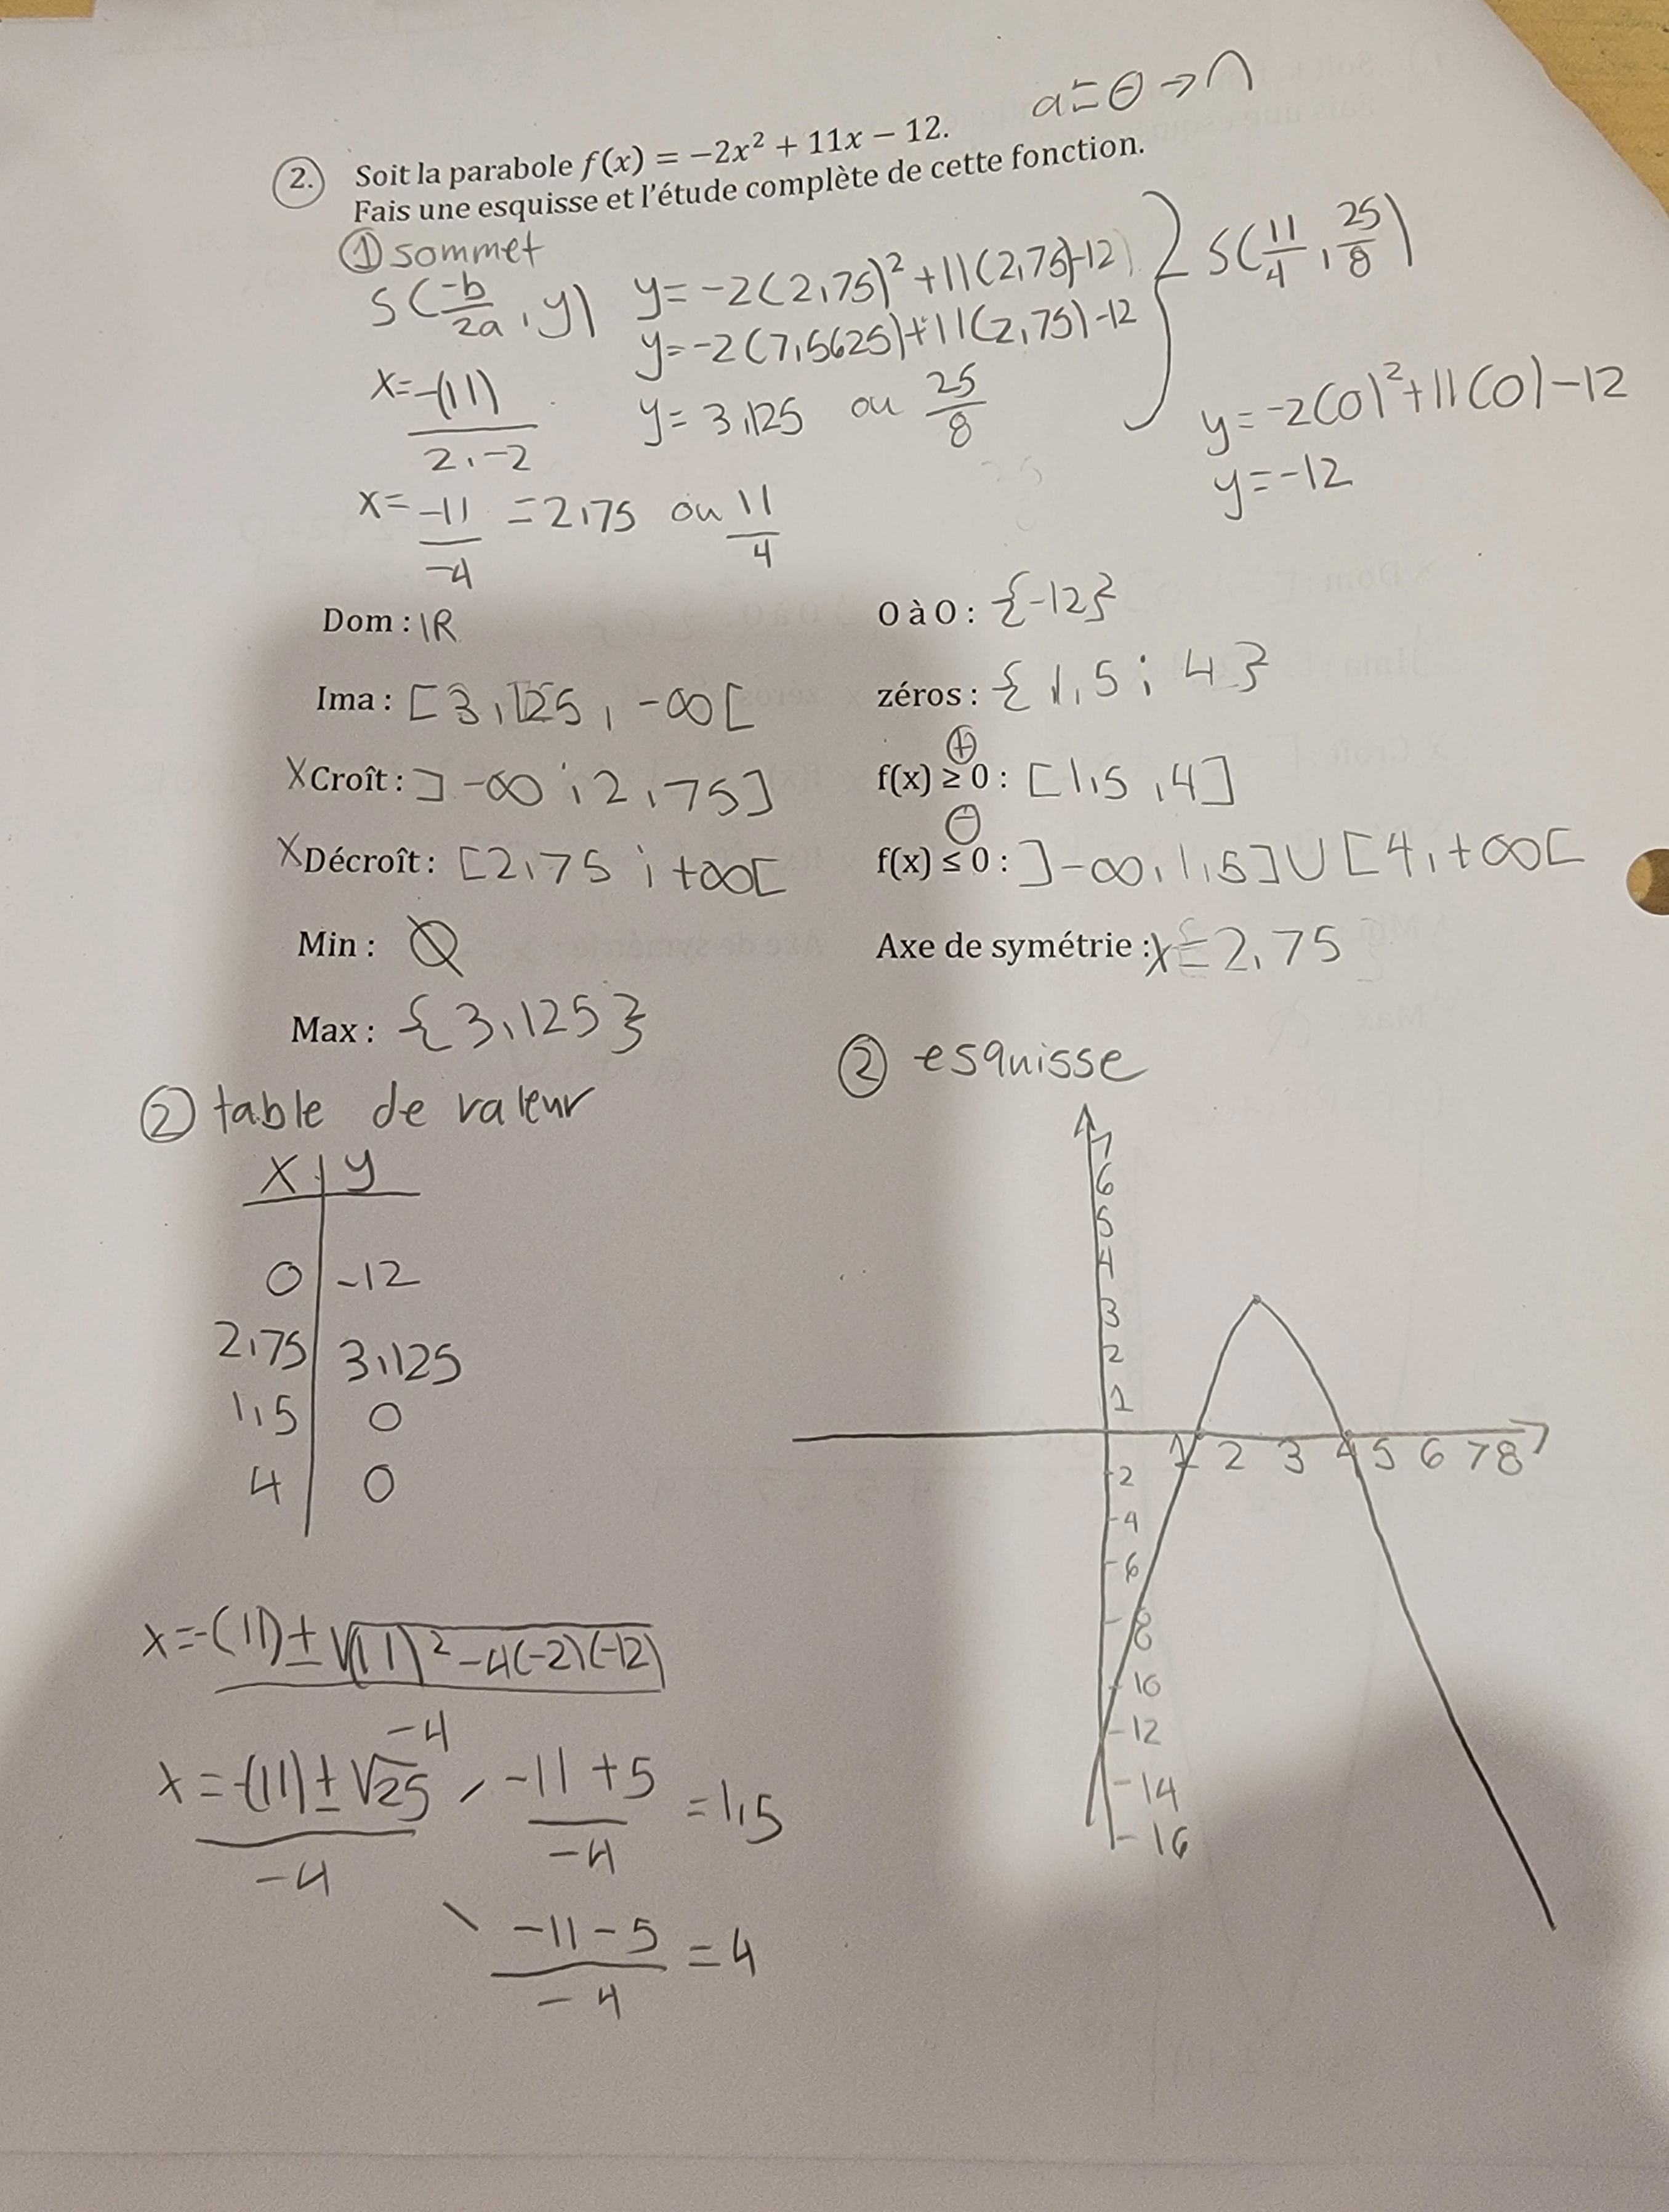 a=⊖→∩
2. Soit la parabole f(x) = −2x² + 11x − 12.
Fais une esquisse et l'étude complète de cette fonction.
① sommet
S(-b/2a, y)
x=-(11)/2·-2
x=-11/-4 =2,75 ou 11/4
y=-2(2,75)²+11(2,75)-12
y=-2(7,5625)+11(2,75)-12
y=3,125 ou 25/8
S(11/4, 25/8)
y=-2(0)²+11(0)-12
y=-12
Dom : IR
Ima : [3,125, -∞[
X Croît : ]-∞ ; 2,75]
X Décroît : [2,75 ; +∞[
Min : Ø
Max : {3,125}
O à O : {-12}
zéros : {1,5 ; 4}
⊕
f(x) ≥ 0 : [1,5 , 4]
⊖
f(x) ≤ 0 : ]-∞, 1,5]U[4, +∞[
Axe de symétrie : x=2,75
② table de valeur
x y
0 -12
2,75 3,125
1,5 0
4 0
x=-(11)±√(11)²-4(-2)(-12)/-4
x=-(11)±√25/-4
-11+5/-4 =1,5
-11-5/-4 =4
② esquisse
7
6
5
4
3
2
1
1 2 3 4 5 6 7 8
-2
-4
-6
-8
-10
-12
-14
-16